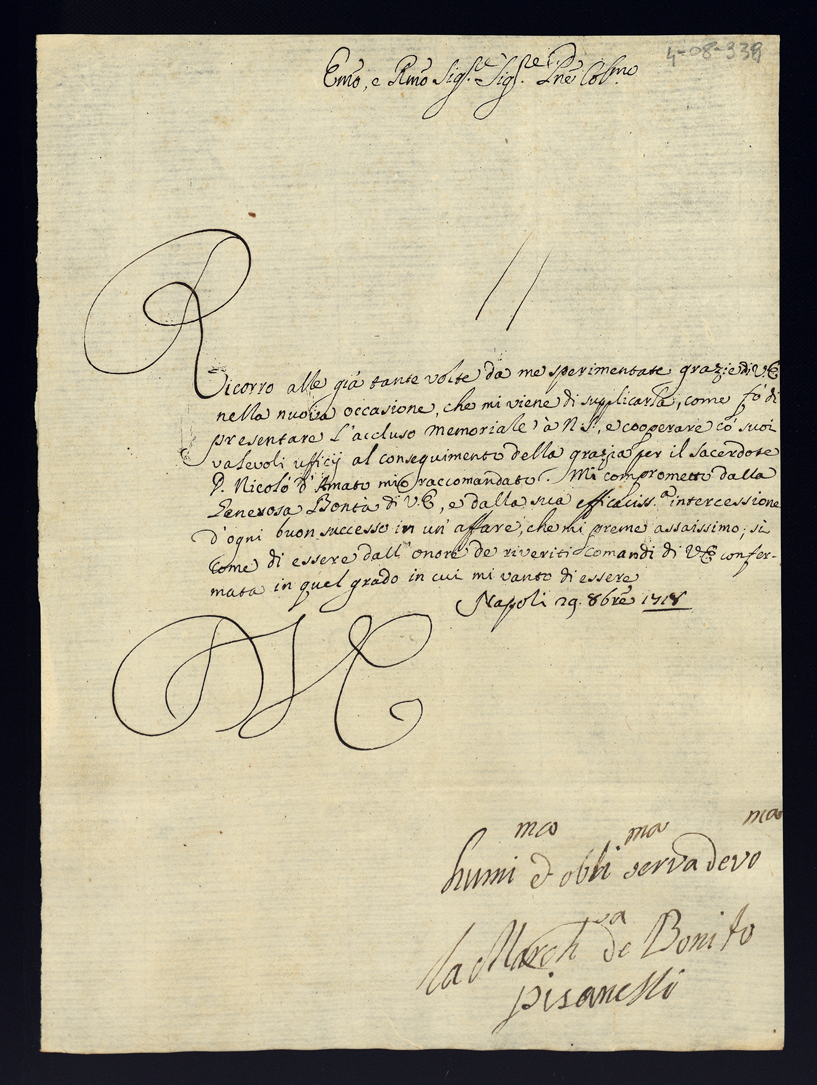 4-08-339
Emo, e Rmo Sig.re Sig.re Pne Col.mo
Ricorro alle già tante volte da me sperimentate grazie di VE
nella nuova occasione, che mi viene di supplicarla, come fò di
presentare l'accluso memoriale à N S., e cooperare cò suoi
valevoli ufficij al conseguimento della grazia per il sacerdote
D. Nicolò d'Amato mio raccomandato. Mi comprometto dalla
Generosa Bontà di V.E, e dalla sua efficaciss.a intercessione
d'ogni buon successo in un' affare, che mi preme assaissimo; sì
come di essere dall' onore de riveriti comandi di VE confer-
mata in quel grado in cui mi vanto di essere
Napoli 29. 8bre 1718
humi e obli serva devo
la March.sa de Bonito
pisanelli